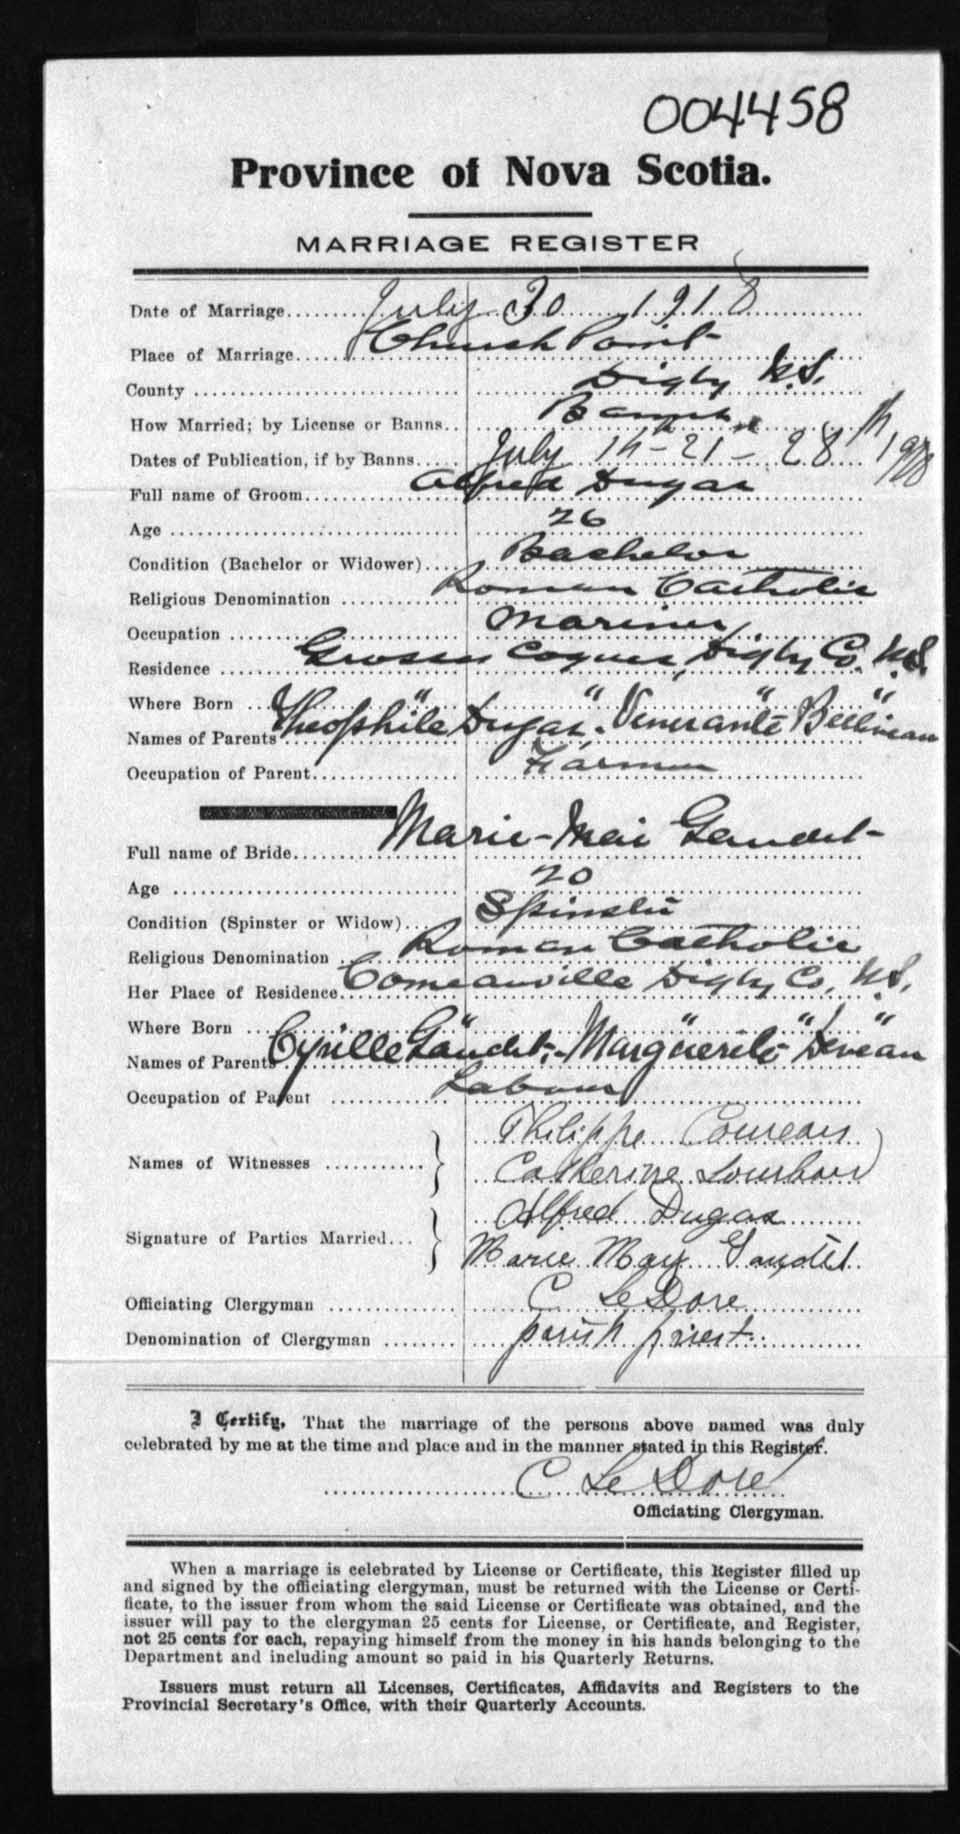 004458
Province of Nova Scotia.
MARRIAGE REGISTER
Date of Marriage July 30 1918
Place of Marriage Church Point
County Digby N.S.
How Married; by License or Banns Banns
Dates of Publication, if by Banns July 14th - 21 - 28th 1918
Full name of Groom Alfred Dugas
Age 26
Condition (Bachelor or Widower) Bachelor
Religious Denomination Roman Catholic
Occupation Mariner
Residence Grosses Coques, Digby Co. N.S.
Where Born " " " "
Names of Parents Théophile Dugas, Vénérante Belliveau
Occupation of Parent Farmer
Full name of Bride Marie-Mai Gaudet
Age 20
Condition (Spinster or Widow) Spinster
Religious Denomination Roman Catholic
Her Place of Residence Comeauville Digby Co. N.S.
Where Born " " " "
Names of Parents Cyrille Gaudet, Marguerite Deveau
Occupation of Parent Labour
Names of Witnesses } Philippe Comeau
Catherine
Signature of Parties Married } Alfred Dugas
Marie May Gaudet
Officiating Clergyman C LeDore
Denomination of Clergyman parish priest
I Certify, That the marriage of the persons above named was duly
celebrated by me at the time and place and in the manner stated in this Register.
C LeDore
Officiating Clergyman.
When a marriage is celebrated by License or Certificate, this Register filled up
and signed by the officiating clergyman, must be returned with the License or Certi-
ficate, to the issuer from whom the said License or Certificate was obtained, and the
issuer will pay to the clergyman 25 cents for License, or Certificate, and Register,
not 25 cents for each, repaying himself from the money in his hands belonging to the
Department and including amount so paid in his Quarterly Returns.
Issuers must return all Licenses, Certificates, Affidavits and Registers to the
Provincial Secretary's Office, with their Quarterly Accounts.